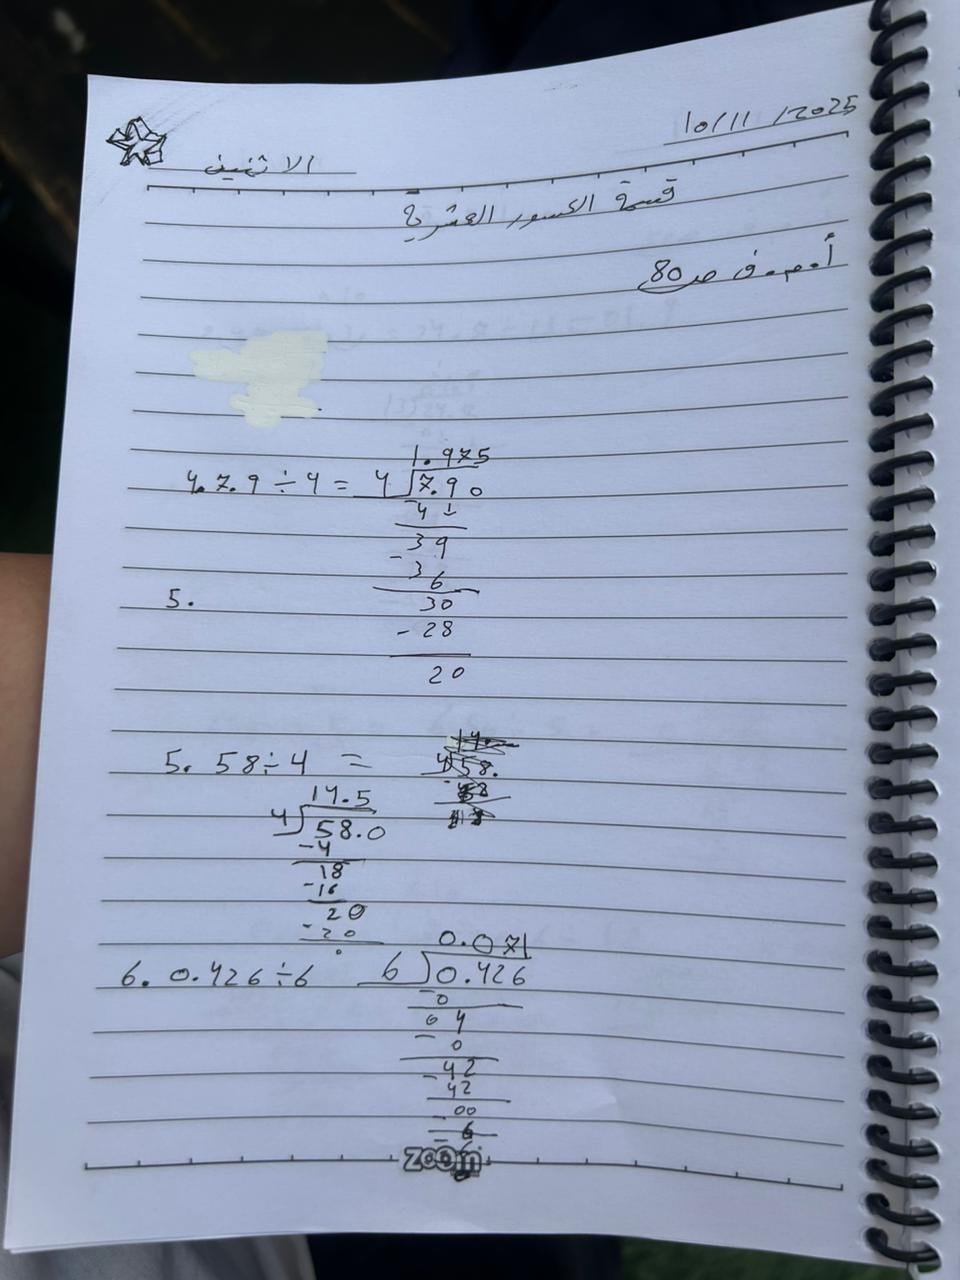 10/11/2025
الاثنين
قسمة الكسور العشرية
أ. م. ف ص 80
1.975
4. 7.9 ÷ 4 = 4 7.90
- 4 ↓
39
- 36
5.
30
- 28
20
5. 58 ÷ 4 =
14.5
4 58.0
- 4
18
- 16
20
- 20
0
0.071
6. 0.426 ÷ 6 6 0.426
- 0
04
- 0
42
- 42
00
- 6
zoom